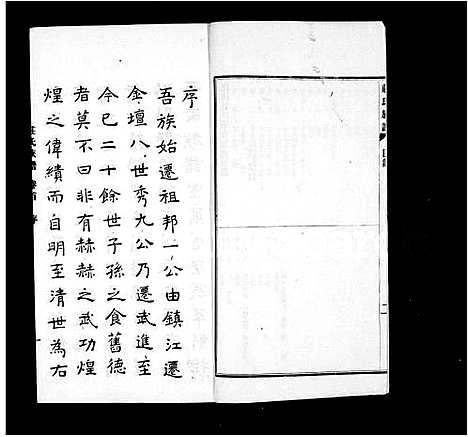 氏族譜 目錄
二
序
吾族始遷祖邦一公由鎮江遷
金壇八世秀九公乃遷武進至
今已二十餘世子孫之食舊德
者莫不曰非有赫赫之武功煌
煌之偉績而自明至清世為右
莊氏族譜 卷首 序
一